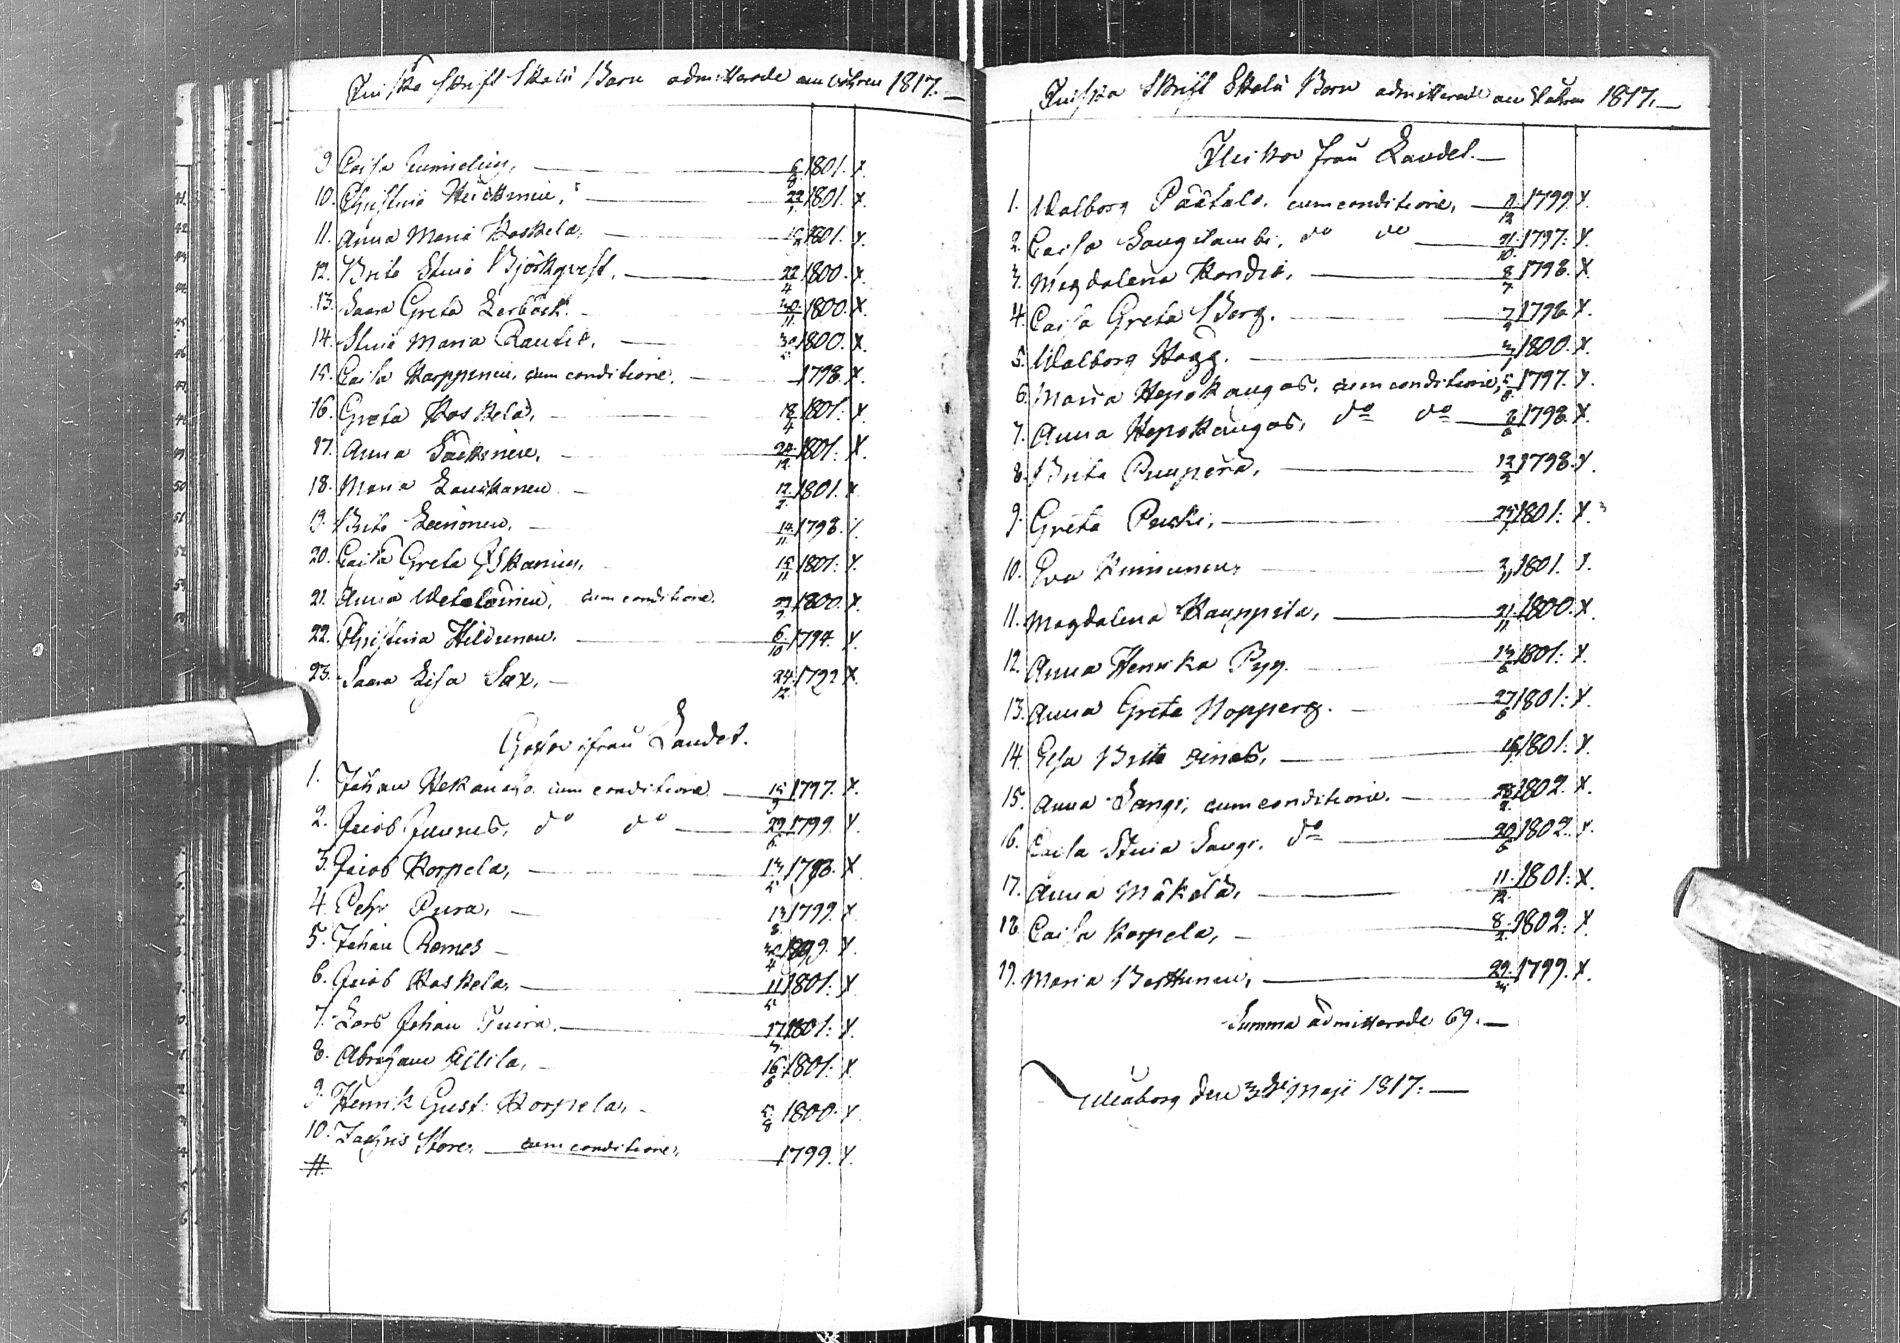 Finska Skrift Skola Barn admitterade om Wåren 1817.
9. Caisa Juniselius, 6/8 1801. X.
10. Christina Heickinen, 22/1 1801. X.
11. Anna Maria Koskela, 1801. X.
12. Brita Stina Björkqvist, 22/4 1800. X
13. Saara Greta Lerbäck. 30/11 1800. X
14. Stina Maria Rautio. 30/5 1800. X.
15. Caisa Karppinen, cum conditione. 1798. X.
16. Greta Koskela, 18/4 1801. X
17. Anna 24/12 1801. X
18. Maria Lauckanen 12/2 1801. X
19. Brita Leinonen, 14/11 1798. X.
20. Caisa Greta 15/11 1801. X.
21. Anna cum conditione. 1800. X.
22. Christina Hildunen. 6/10 1794. X
23. Saara Lisa Sax, 24/12 1792 X.
Gossar ifrån Landet.
1. Johan Hekanaho cum conditione 1797. X.
2. Jacob Junnus, do do 29/6 1799. X.
3. Jacob Korpela, 13/5 1798. X
4. Pehr Pura, 13/8 1799. X.
5. Johan Remes 30/4 1799. X.
6. Jacob Koskela, 11/5 1801. X
7. Lars Johan Tuira, 1801. X.
8. Abraham Attila, 16/6 1801. X.
9. Henrik Gust: Korpela, 5/8 1800. X.
10. Zachris Store, cum conditione, 1799. X.
11.
Finska Skrift Skola Barn admitterade om Wåren 1817.
Flickor från Landet.
1. Walborg Päätalo, cum conditione, 1799. X.
2. Caisa Sangilambi, do do 21/10 1797. X.
3. Magdalena Kordis, 8/7 1798. X
4. Caisa Greta Berg. 1798. X.
5. Walborg Hagg. 1800. X.
6. Maria Hepokangas, cum conditione, 1797. X.
7. Anna Hepokangas, do do 1798. X.
8. Brita Puuperä, 12/2 1798. X.
9. Greta Puski, 1801. X.
10. Eva Kinnunen, 1801. X.
11. Magdalena Kauppila, 21/11 1800. X.
12. Anna Henrika Pyy. 13/6 1801. X.
13. Anna Greta Hopperg. 27/6 1801. X.
14. Elsa Brita 1801. X.
15. Anna Sangi, cum conditione. 1802. X
16. Caisa Stina Sangi. do 20/6 1802. X
17. Anna Mäkelä, 11/12 1801. X.
18. Caisa Korpela, 8/2 1802. X.
19. Maria 29 1799. X.
Summa admitterade 69.
Uleåborg den Maji 1817.